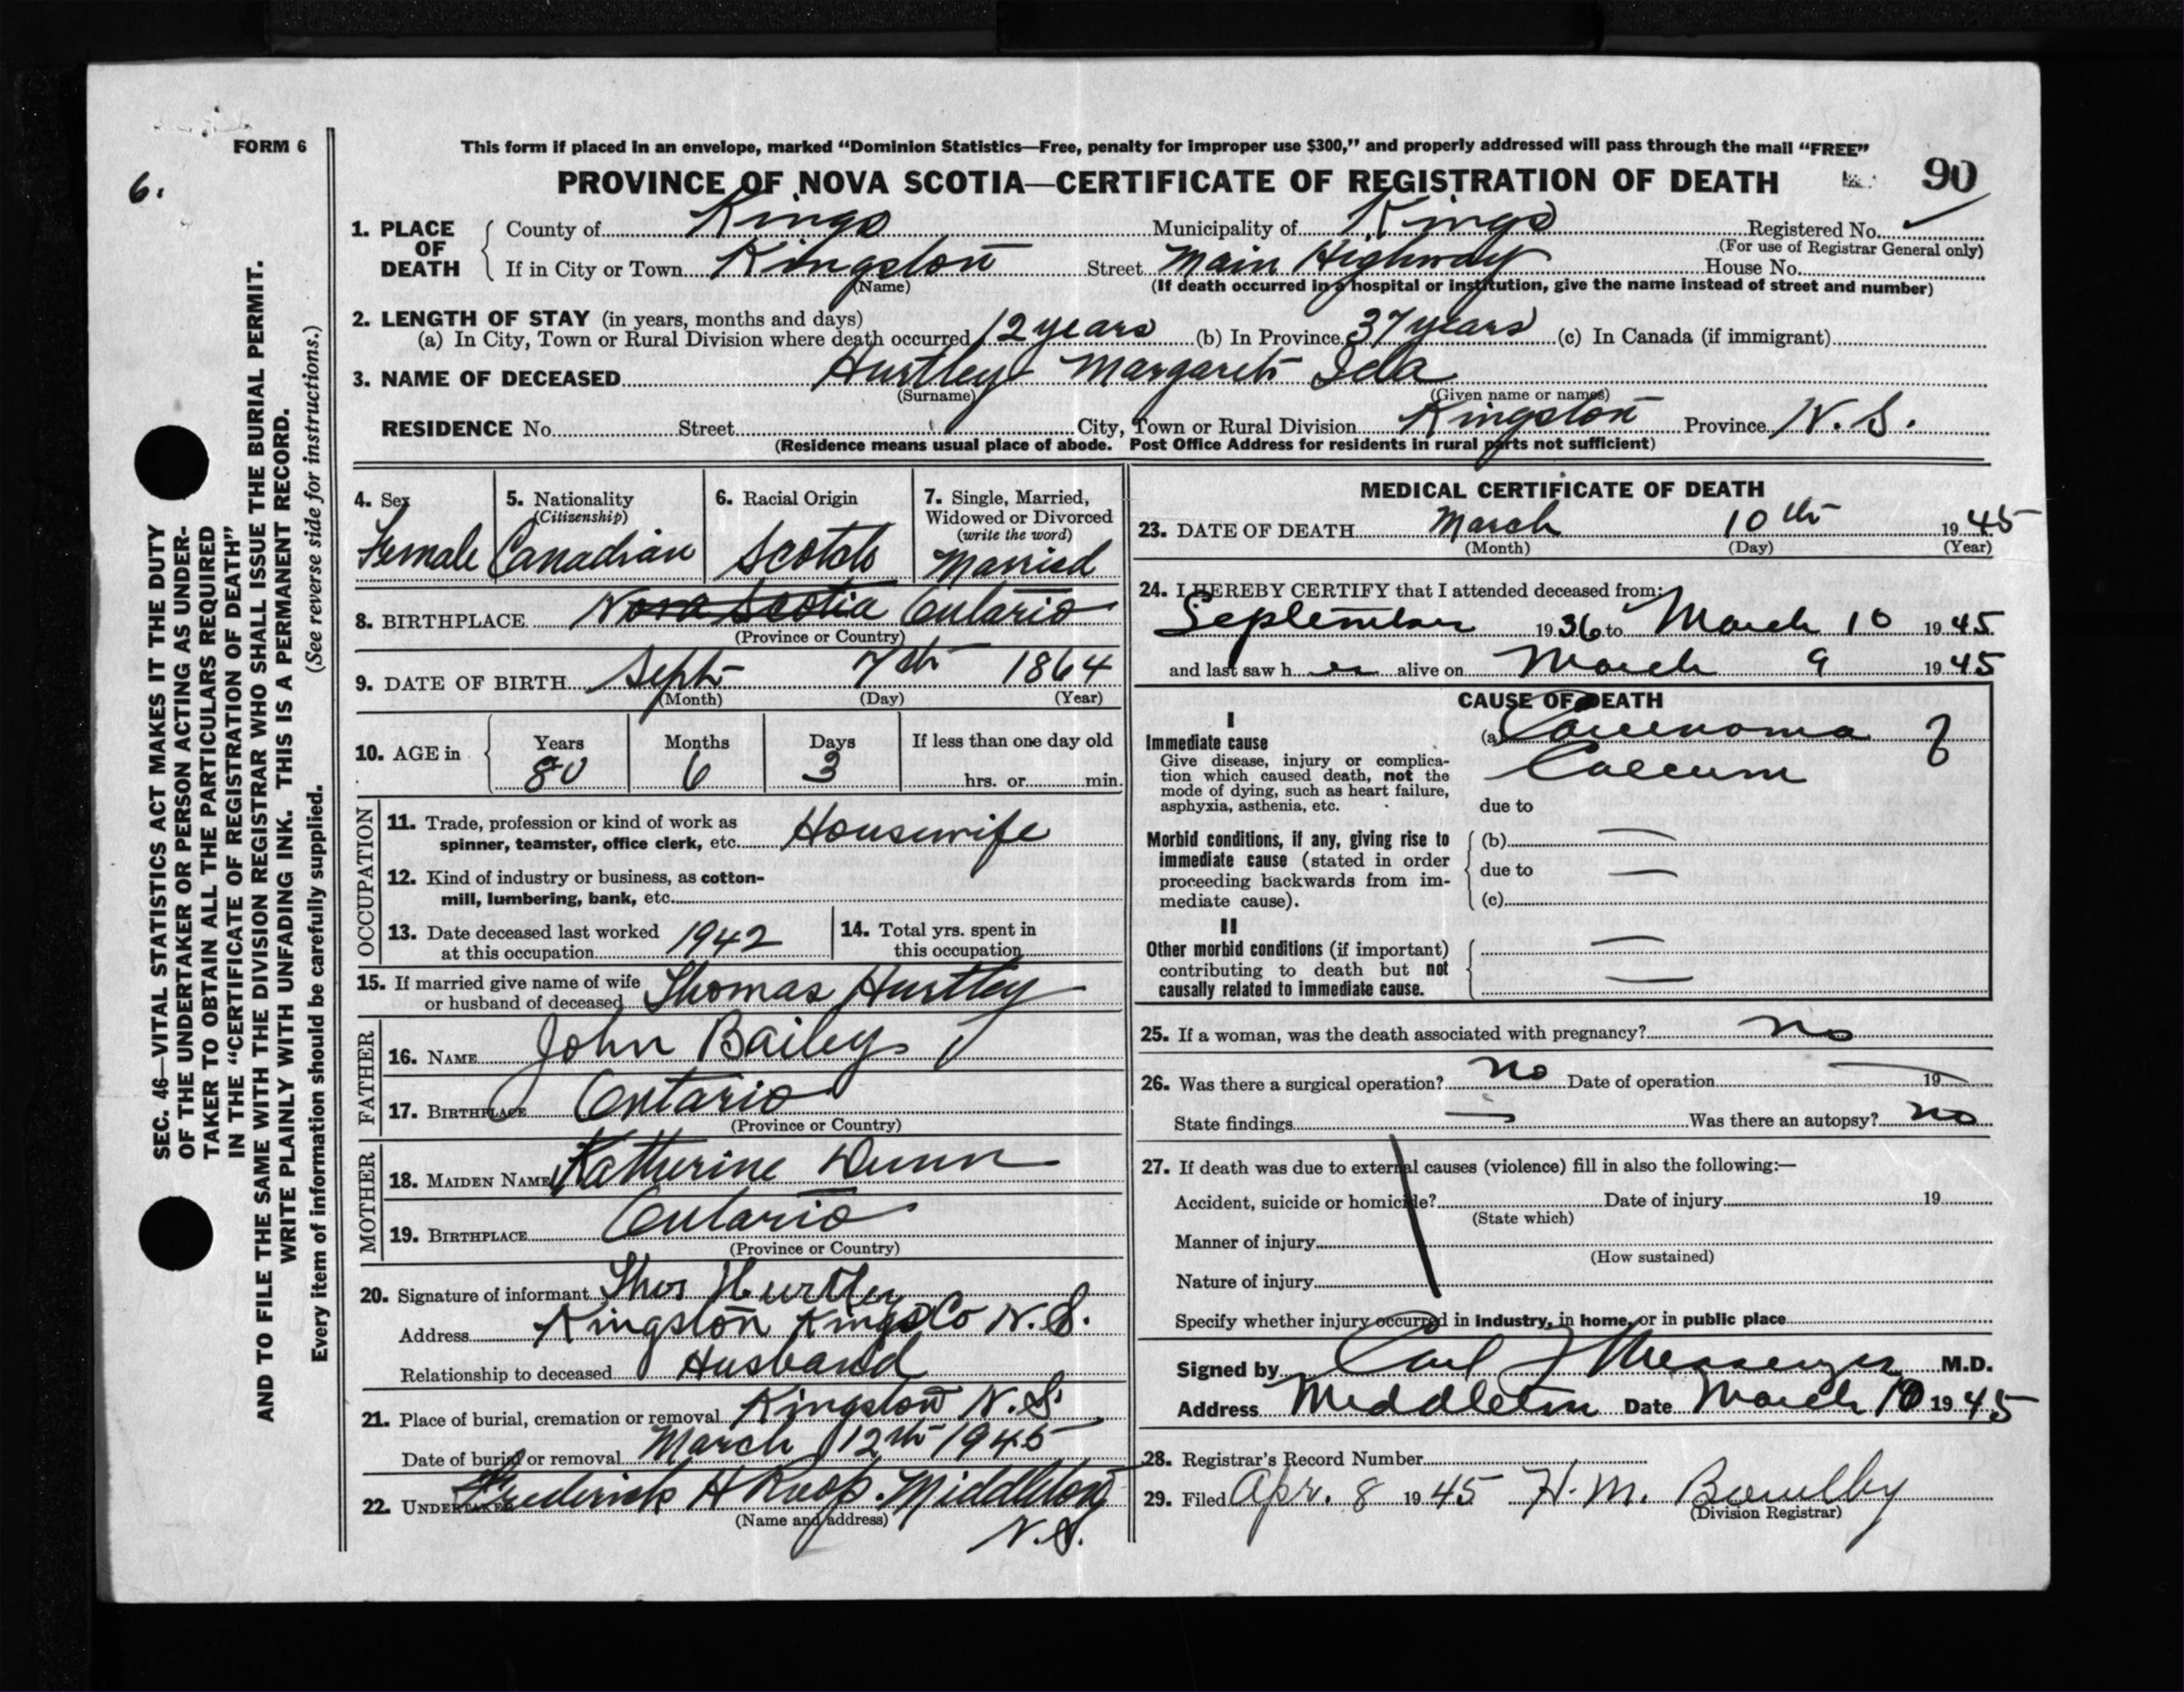 FORM 6
6.
This form if placed in an envelope, marked “Dominion Statistics—Free, penalty for improper use $300,” and properly addressed will pass through the mail “FREE”
PROVINCE OF NOVA SCOTIA—CERTIFICATE OF REGISTRATION OF DEATH
90
1. PLACE OF DEATH
County of Kings Municipality of Kings Registered No.
(For use of Registrar General only)
If in City or Town Kingston Street Main Highway House No.
(Name) (If death occurred in a hospital or institution, give the name instead of street and number)
2. LENGTH OF STAY (in years, months and days)
(a) In City, Town or Rural Division where death occurred 12 years (b) In Province 37 years (c) In Canada (if immigrant)
3. NAME OF DECEASED Hurtley Margaret Ida
(Surname) (Given name or names)
RESIDENCE No. Street City, Town or Rural Division Kingston Province N.S.
(Residence means usual place of abode. Post Office Address for residents in rural parts not sufficient)
4. Sex
Female
5. Nationality
(Citizenship)
Canadian
6. Racial Origin
Scotch
7. Single, Married,
Widowed or Divorced
(write the word)
Married
8. BIRTHPLACE Nova Scotia Ontario
(Province or Country)
9. DATE OF BIRTH Sept 7th 1864
(Month) (Day) (Year)
10. AGE in
Years Months Days If less than one day old
80 6 3 hrs. or min.
OCCUPATION
11. Trade, profession or kind of work as
spinner, teamster, office clerk, etc. Housewife
12. Kind of industry or business, as cotton-
mill, lumbering, bank, etc.
13. Date deceased last worked
at this occupation 1942
14. Total yrs. spent in
this occupation
15. If married give name of wife
or husband of deceased Thomas Hurtley
FATHER
16. NAME John Bailey
17. BIRTHPLACE Ontario
(Province or Country)
MOTHER
18. MAIDEN NAME Katherine Dunn
19. BIRTHPLACE Ontario
(Province or Country)
20. Signature of informant Thos Hurtley
Address Kingston Kings Co N.S.
Relationship to deceased Husband
21. Place of burial, cremation or removal Kingston N.S.
Date of burial or removal March 12th 1945
22. UNDERTAKER Frederick H Roop. Middleton
(Name and address)
N.S.
MEDICAL CERTIFICATE OF DEATH
23. DATE OF DEATH March 10th 1945
(Month) (Day) (Year)
24. I HEREBY CERTIFY that I attended deceased from:
September 1936 to March 10 1945
and last saw her alive on March 9 1945
CAUSE OF DEATH
I
Immediate cause
Give disease, injury or complica-
tion which caused death, not the
mode of dying, such as heart failure,
asphyxia, asthenia, etc.
(a) Carcinoma of
Caecum
due to
Morbid conditions, if any, giving rise to
immediate cause (stated in order
proceeding backwards from im-
mediate cause).
(b) —
due to —
(c)
II
Other morbid conditions (if important)
contributing to death but not
causally related to immediate cause.
—
—
25. If a woman, was the death associated with pregnancy? no
26. Was there a surgical operation? no Date of operation — 19
State findings — Was there an autopsy? no
27. If death was due to external causes (violence) fill in also the following:—
Accident, suicide or homicide? Date of injury 19
(State which)
Manner of injury
(How sustained)
Nature of injury
Specify whether injury occurred in industry, in home, or in public place
Signed by Carl J Messenger M.D.
Address Middleton Date March 10 1945
28. Registrar's Record Number
29. Filed Apr. 8 1945 H. M.
(Division Registrar)
SEC. 46—VITAL STATISTICS ACT MAKES IT THE DUTY
OF THE UNDERTAKER OR PERSON ACTING AS UNDER-
TAKER TO OBTAIN ALL THE PARTICULARS REQUIRED
IN THE “CERTIFICATE OF REGISTRATION OF DEATH”
AND TO FILE THE SAME WITH THE DIVISION REGISTRAR WHO SHALL ISSUE THE BURIAL PERMIT.
WRITE PLAINLY WITH UNFADING INK. THIS IS A PERMANENT RECORD.
Every item of information should be carefully supplied. (See reverse side for instructions.)